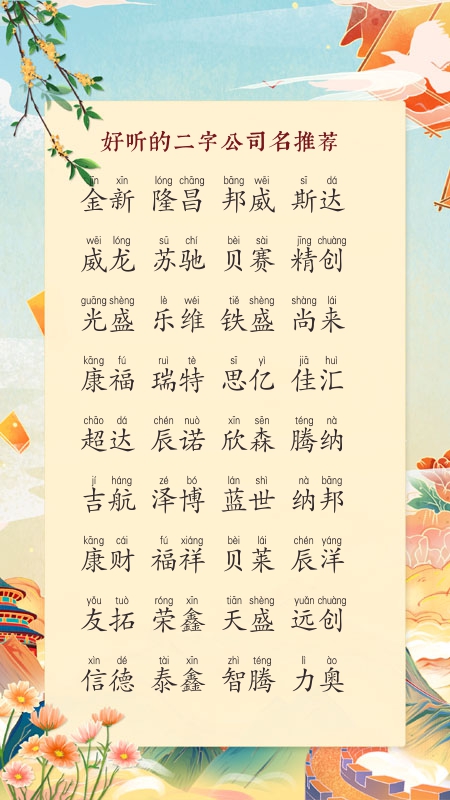 好听的二字公司名推荐
jīn xīn lóng chāng bāng wēi sī dá
金新 隆昌 邦威 斯达
wēi lóng sū chí bèi sài jīng chuàng
威龙 苏驰 贝赛 精创
guāng shèng lè wéi tiě shèng shàng lái
光盛 乐维 铁盛 尚来
kāng fú ruì tè sī yì jiā huì
康福 瑞特 思亿 佳汇
chāo dá chén nuò xīn sēn téng nà
超达 辰诺 欣森 腾纳
jí háng zé bó lán shì nà bāng
吉航 泽博 蓝世 纳邦
kāng cái fú xiáng bèi lái chén yáng
康财 福祥 贝莱 辰洋
yǒu tuò róng xīn tiān shèng yuǎn chuàng
友拓 荣鑫 天盛 远创
xìn dé tài xīn zhì téng lì ào
信德 泰鑫 智腾 力奥